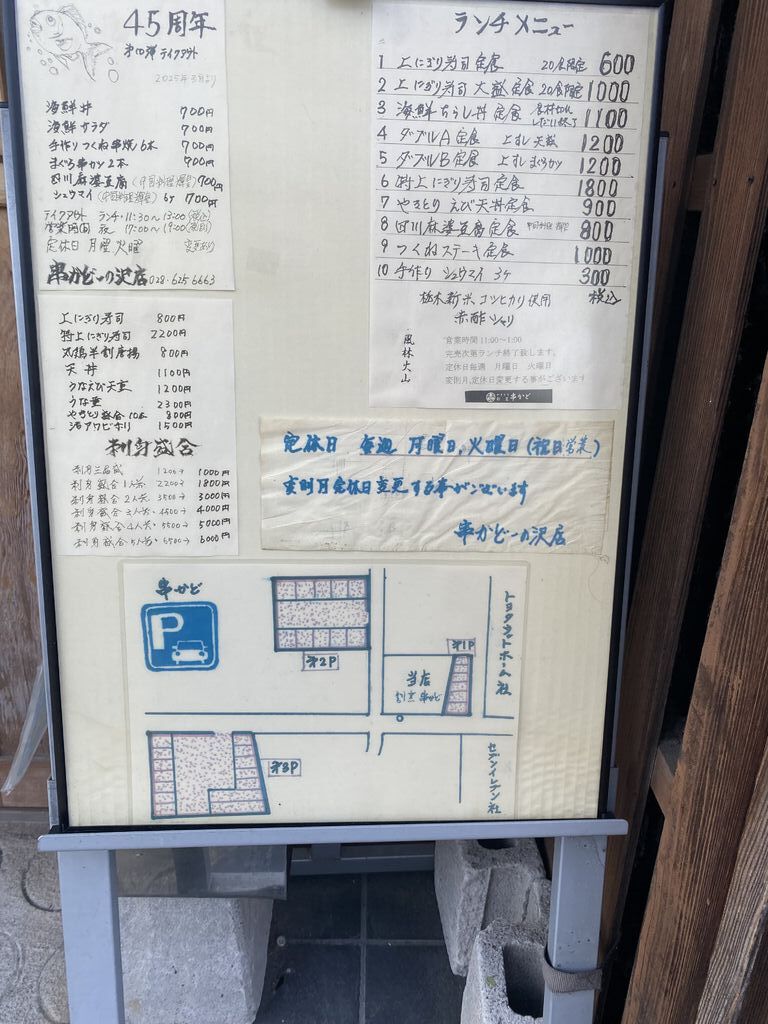 45周年
第四弾 テイクアウト
2025年3月より
海鮮丼 700円
海鮮サラダ 700円
手作りつくね串焼6本 700円
まぐろ串かつ2本 900円
四川麻婆豆腐 700円
シュウマイ 6ケ 700円
テイクアウト ランチ・11:30~13:00 (税込)
営業時間 夜 17:00~19:00
定休日 月曜 火曜 変更あり
串かど一の沢店 028-625-6663
上にぎり寿司 800円
特上にぎり寿司 2200円
若鶏半割唐揚 800円
天丼 1100円
うなえび天重 1200円
うな重 2300円
やきとり 総合10本 800円
活アワビホリ 1500円
刺身盛合
刺身三品盛 1200→1000円
刺身盛合1人前 2200→1800円
刺身盛合2人前 3500→3000円
刺身盛合3人前 4500→4000円
刺身盛合4人前 5500→5000円
刺身盛合5人前 6500→6000円
ランチメニュー
1 上にぎり寿司定食 20食限定 600
2 上にぎり寿司大盛定食 20食限定 1000
3 海鮮ちらし丼定食 食材切れしだい終了 1100
4 ダブルA定食 上すし 天丼 1200
5 ダブルB定食 上すし まぐろかつ 1200
6 特上にぎり寿司定食 1800
7 やきとり えび天丼定食 900
8 四川麻婆豆腐定食 800
9 つくねステーキ定食 1000
10 手作り シュウマイ 3ケ 300
栃木新米コシヒカリ使用 税込
赤酢シャリ
風林火山
営業時間 11:00~1:00
完売次第ランチ終了致します。
定休日毎週 月曜日 火曜日
変則月,定休日変更する事がございます
串かど
定休日 毎週 月曜日,火曜日(祝日営業)
変則月定休日変更する事がございます
串かど一の沢店
串かど
P
第2P
第1P
当店
割烹 串かど
トヨタウッドホーム社
第3P
セブンイレブン社